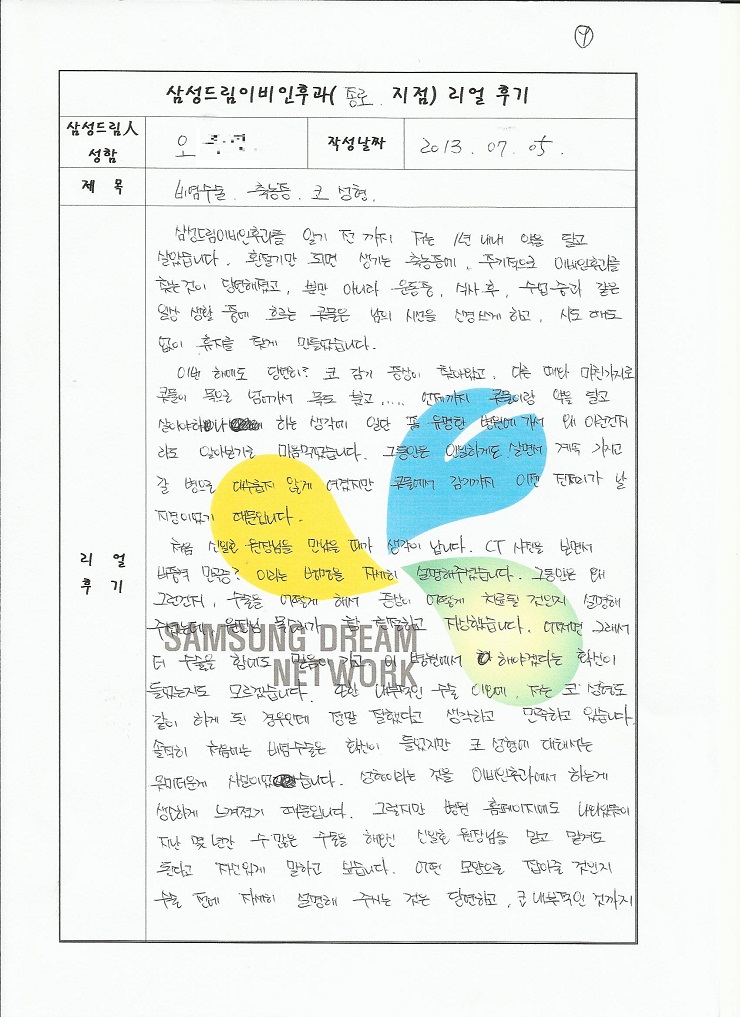 삼성드림이비인후과( 종로 지점) 리얼 후기
삼성드림人
성함
오
작성날짜
2013. 07. 05.
제 목
비염수술. 축농증. 코 성형.
리 얼
후 기
삼성드림이비인후과를 알기 전 까지 저는 1년 내내 약을 달고
살았습니다. 환절기만 되면 생기는 축농증에, 주기적으로 이비인후과를
찾는것이 당연해졌고, 뿐만 아니라 운동중, 식사 후, 수업중과 같은
일상 생활 중에 흐르는 콧물은 남의 시선을 신경쓰게 하고, 시도 때도
없이 휴지를 찾게 만들었습니다.
이번 해에도 당연히? 코 감기 증상이 찾아왔고, 다른 때와 마찬가지로
콧물이 목으로 넘어가서 목도 헐고..... 언제까지 콧물이랑 약을 달고
살아야하나 하는 생각에 일단 좀 유명한 병원에 가서 왜 이런건지
라도 알아보기로 마음먹었습니다. 그동안은 안일하게도 살면서 계속 가지고
갈 병으로 대수롭지 않게 여겼지만 콧물에서 감기까지 이젠 진저리가 날
지경이었기 때문입니다.
처음 신일호 원장님을 만났을 때가 생각이 납니다. CT 사진을 보면서
비중격 만곡증? 이라는 병명을 자세히 설명해주셨습니다. 그동안은 왜
그런건지, 수술을 어떻게 해서 증상이 어떻게 치료될 것인지 설명해
주셨는데 원장님 목소리가 참 친절하고 자상했습니다. 어쩌면 그래서
더 수술을 함에도 믿음이 가고 이 병원에서 해야겠다는 확신이
들었는지도 모르겠습니다. 또한 내부적인 수술 이외에, 저는 코 성형도
같이 하게 된 경우인데 정말 잘했다고 생각하고 만족하고 있습니다.
솔직히 처음에는 비염수술은 확신이 들었지만 코 성형에 대해서는
못미더운게 사실이었습니다. 성형이라는 것을 이비인후과에서 하는게
생소하게 느껴졌기 때문입니다. 그렇지만 병원 홈페이지에도 나와있듯이
지난 몇 년간 수 많은 수술을 해오신 신일호 원장님을 믿고 맡겨도
된다고 자신있게 말하고 싶습니다. 어떤 모양으로 잡아줄 것인지
수술 전에 자세히 설명해 주시는 것은 당연하고, 코 내부적인 것까지
SAMSUNG DREAM
NETWORK